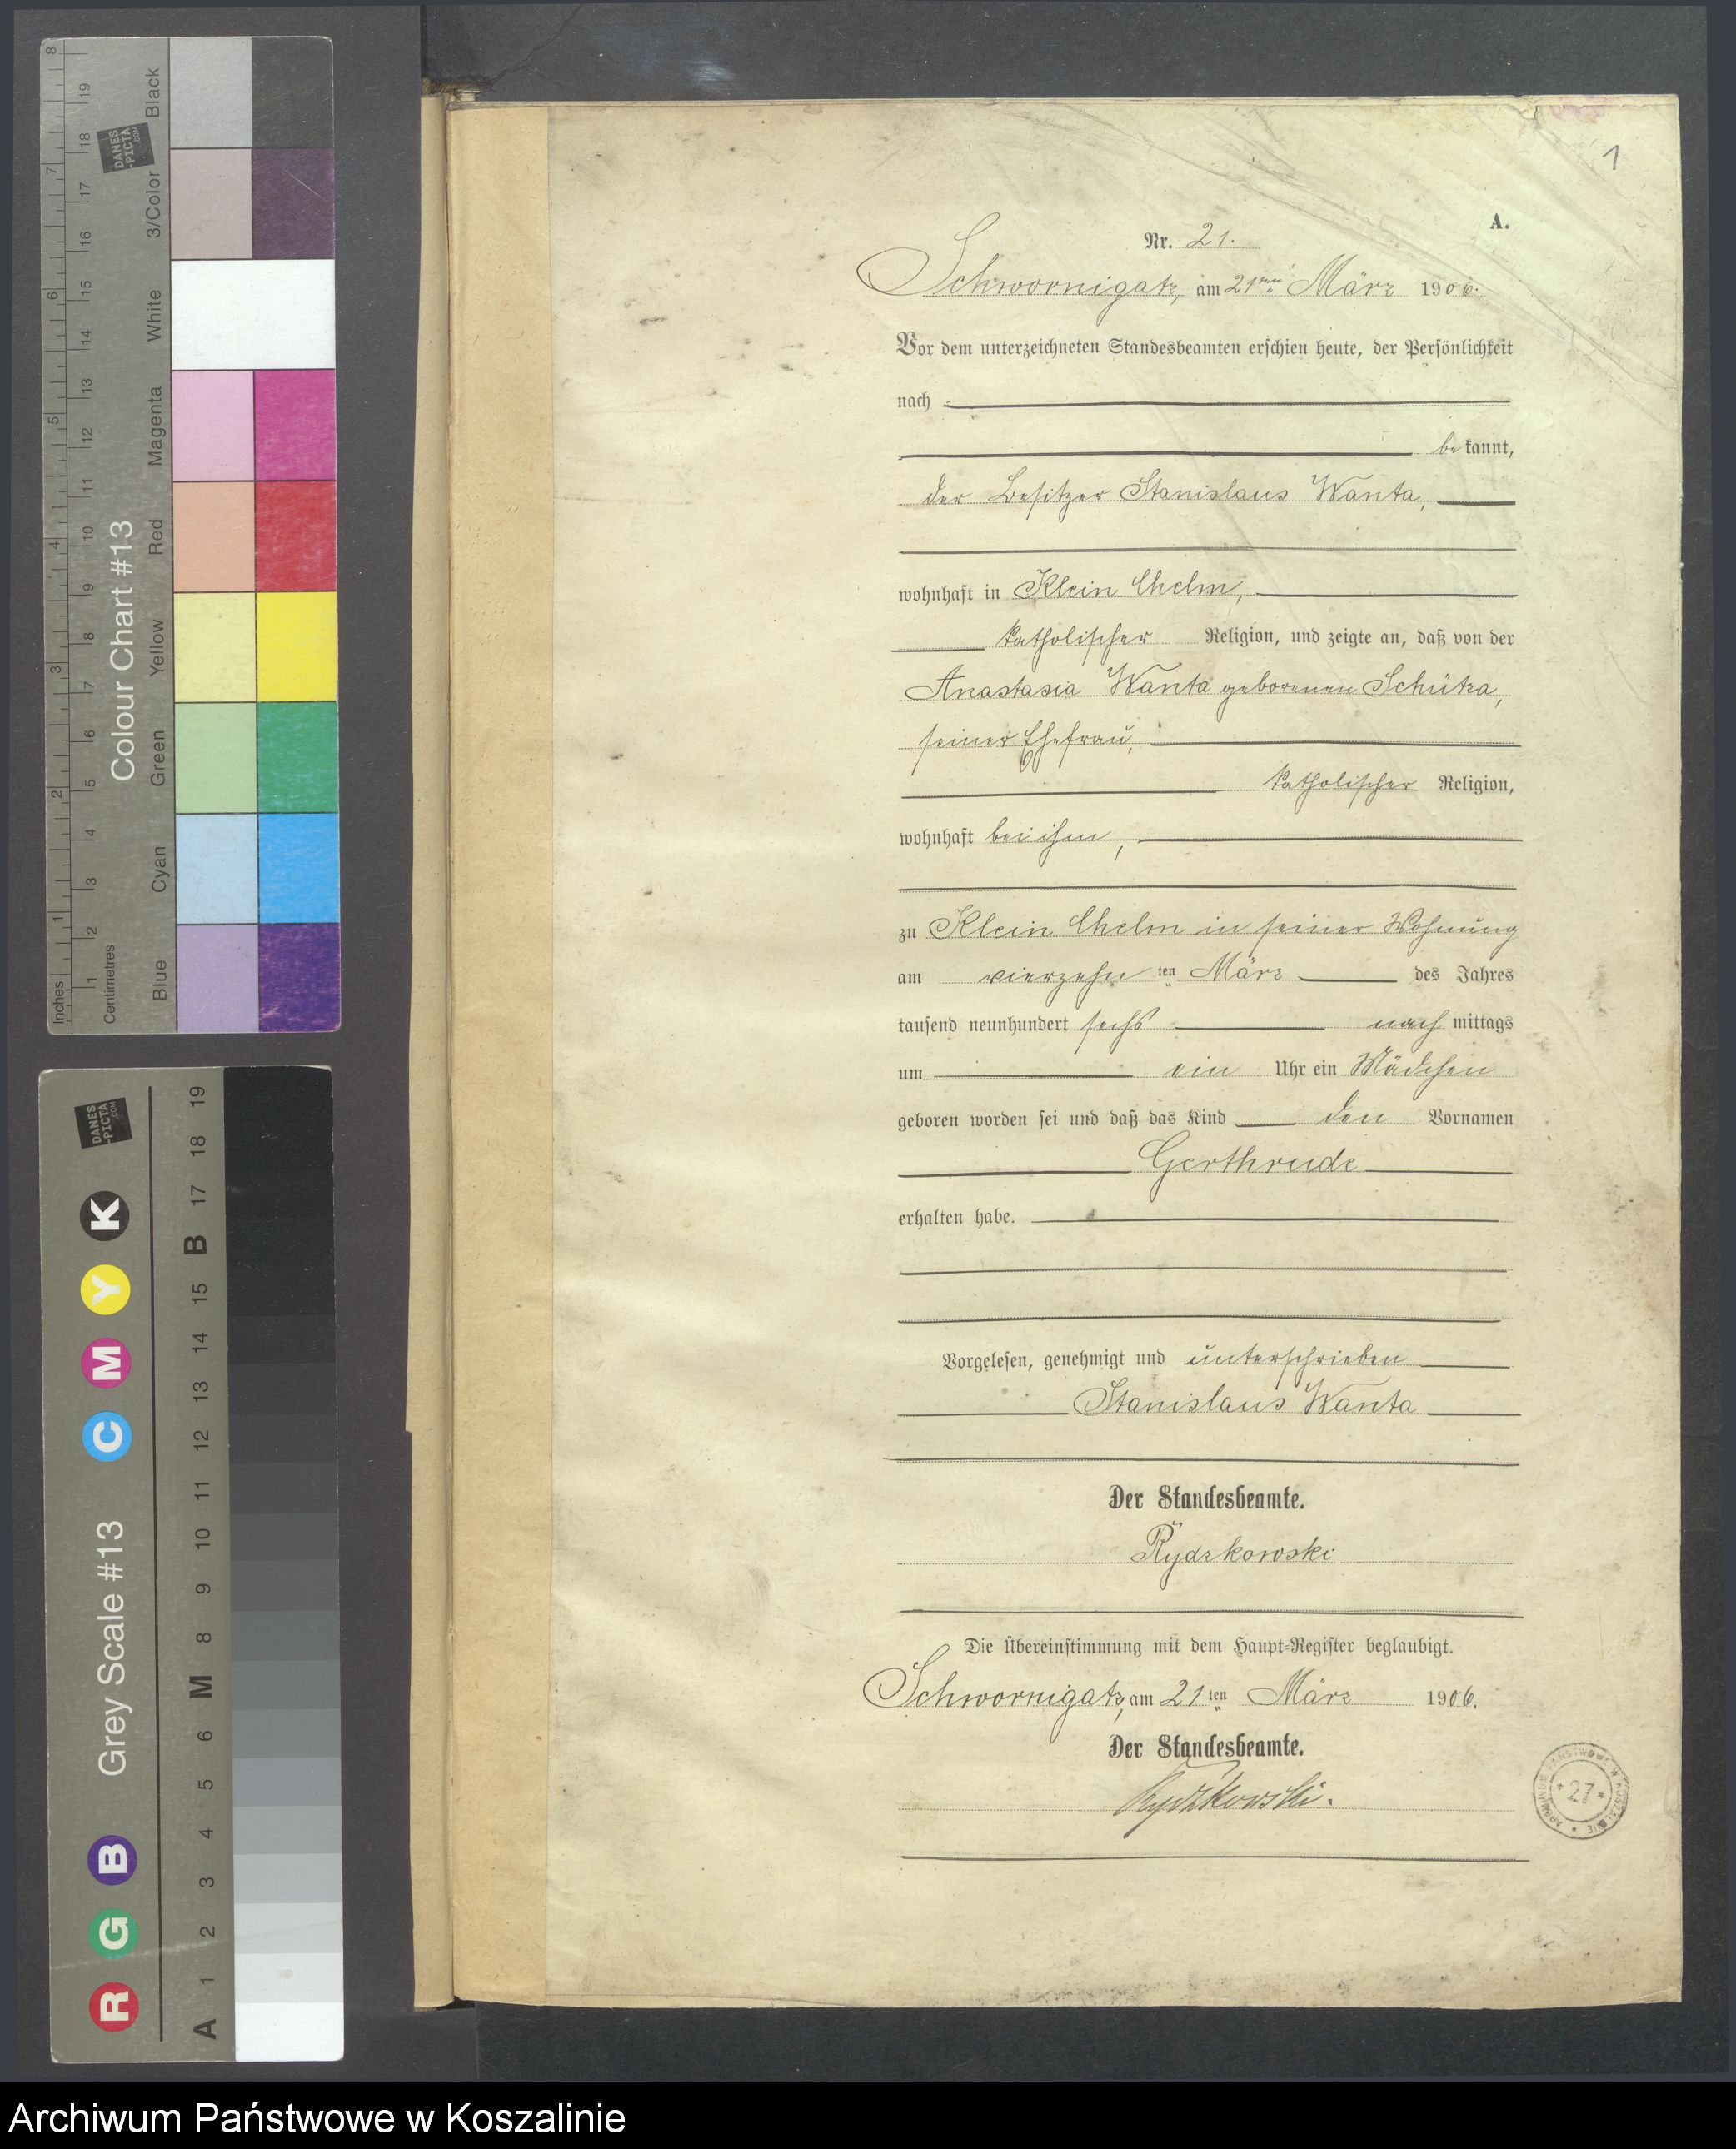 1
A.
Nr. 21.
Schwornigatz, am 21ten März 1906.
Vor dem unterzeichneten Standesbeamten erschien heute, der Persönlichkeit
nach
bekannt,
der Besitzer Stanislaus Wanta,
wohnhaft in Klein Chelm,
katholischer Religion, und zeigte an, daß von der
Anastasia Wanta geborenen Schütza,
seiner Ehefrau,
katholischer Religion,
wohnhaft bei ihm,
zu Klein Chelm in seiner Wohnung
am vierzehnten März des Jahres
tausend neunhundert sechs nachmittags
um ein Uhr ein Mädchen
geboren worden sei und daß das Kind den Vornamen
Gerthrude
erhalten habe.
Vorgelesen, genehmigt und unterschrieben
Stanislaus Wanta
Der Standesbeamte.
Rydzkowski
Die Übereinstimmung mit dem Haupt-Register beglaubigt.
Schwornigatz, am 21ten März 1906.
Der Standesbeamte.
Rydzkowski.
ARCHIWUM PAŃSTWOWE W KOSZALINIE
* 27 *
Colour Chart #13
Blue Cyan Green Yellow Red Magenta White 3/Color Black
Inches 1 2 3 4 5 6 7 8
Centimetres 1 2 3 4 5 6 7 8 9 10 11 12 13 14 15 16 17 18 19
DANES-PICTA.COM
Grey Scale #13
R G B C M Y K
A 1 2 3 4 5 6 M 8 9 10 11 12 13 14 15 B 17 18 19
DANES-PICTA.COM
Archiwum Państwowe w Koszalinie